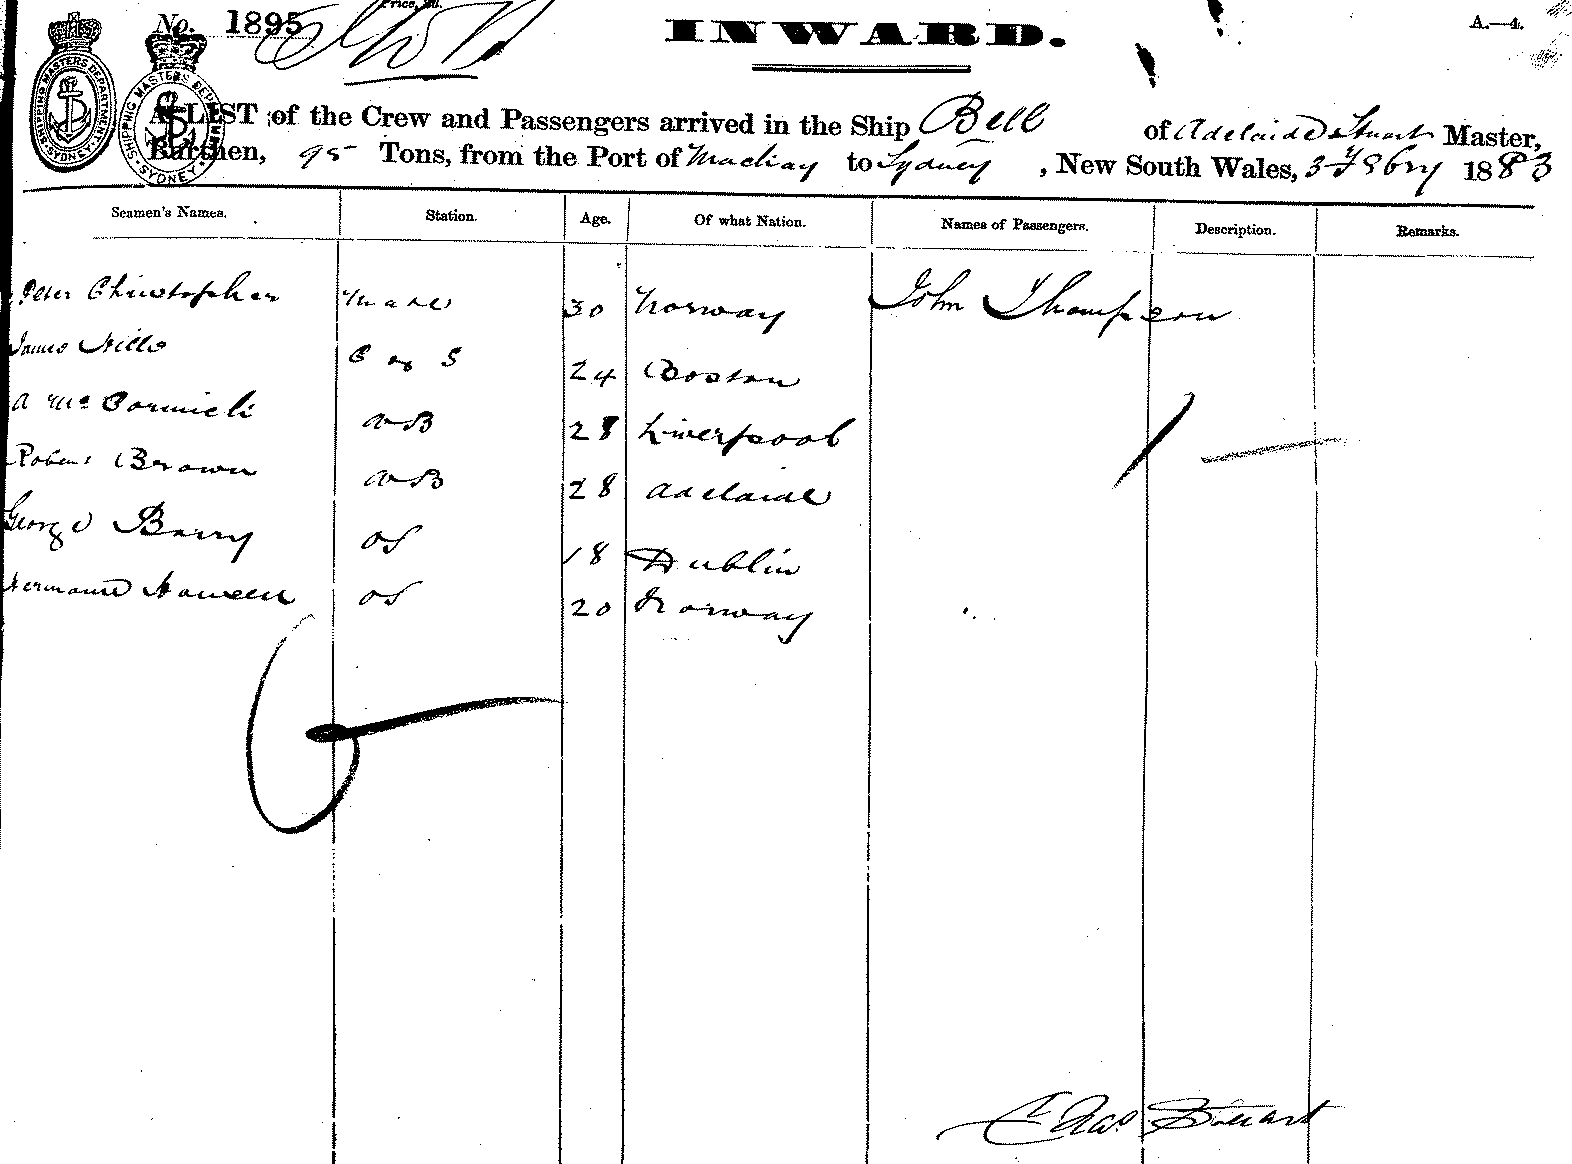 No. 1895
INWARD.
A.—4.
SHIPPING MASTERS DEPARTMENT SYDNEY
SHIPPING MASTERS DEPARTMENT SYDNEY
A LIST of the Crew and Passengers arrived in the Ship Bell of Adelaide Stuart Master,
Burthen, 95 Tons, from the Port of Macleay to Sydney, New South Wales, 3 Febry 1883
Seamen's Names. Station. Age. Of what Nation. Names of Passengers. Description. Remarks.
Peter Christopher Mate 30 Norway John Thompson
James Hills C & S 24 Boston
A McCormick AB 28 Liverpool
Robert Brown AB 28 Adelaide
George Barry OS 18 Dublin
OS 20 Norway
Chas Stuart